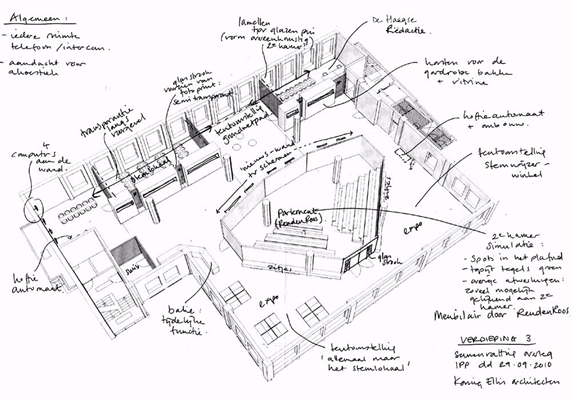 Algemeen:
- iedere ruimte
telefoon/intercom.
- aandacht voor
akoestiek
lamellen
tpv glazen pui
(vorm overeenkomstig
2e kamer)
De Haagse
Redactie.
glasstrook
voorzien van
fotoprint:
semi transparant
kasten voor de
garderobe bakken
+ vitrine
transparantie
langs
voorgevel
tentoonstelling
grondwetpad
koffieautomaat
+ ombouw.
tentoonstelling
stemwijzer-
winkel
4
computers
aan de
wand.
stemlokaal
nieuws-wand
tv schermen
zitjes
Parlement
(RendenRoos)
expo
koffie
automaat
zitjes
glas
strook
expo
balie:
tijdelijke
functie.
2e kamer
simulatie:
- spots in het plafond
- tapijt tegels groen
- overige afwerkingen:
zoveel mogelijk
gelijkend aan 2e
kamer.
Meubilair door RendenRoos
tentoonstelling
'allemaal maar
het stemlokaal'
VERDIEPING 3
samenvatting overleg
IPP dd 29.09.2010
Koning Ellis architecten